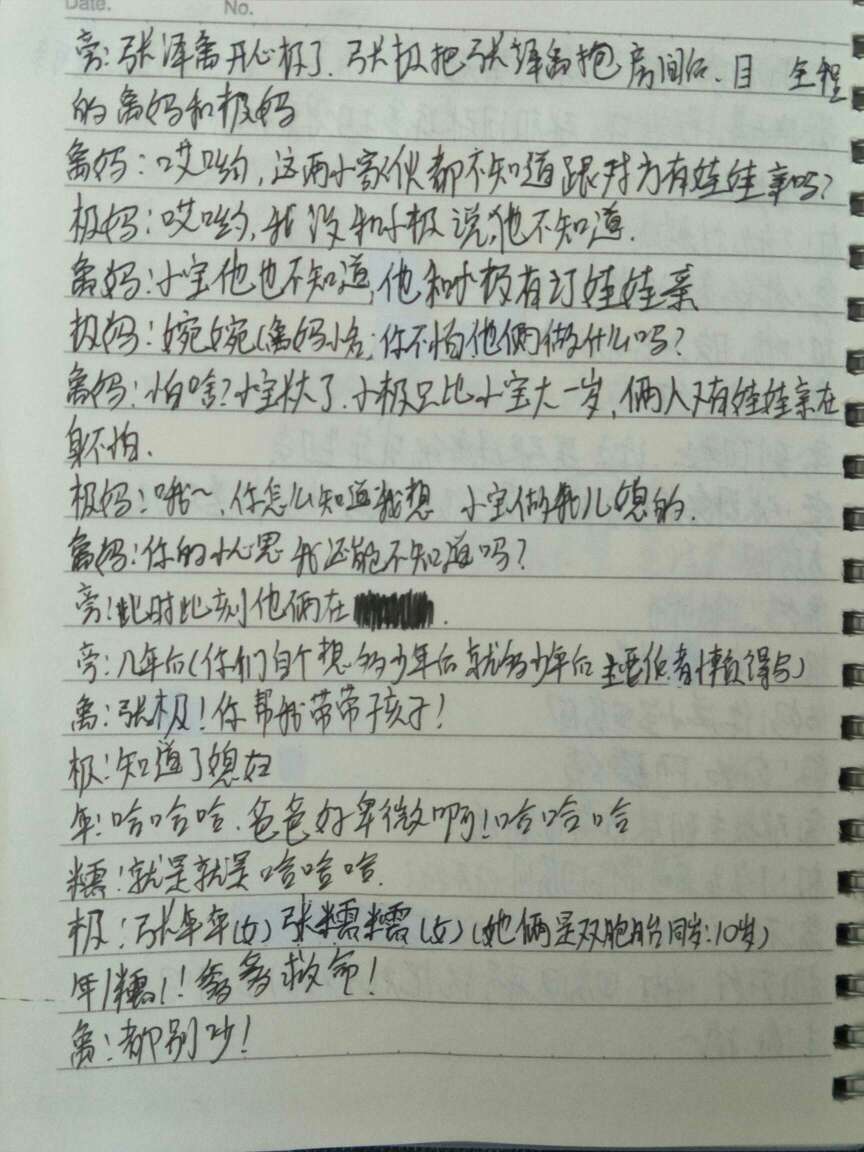 Date. No.
旁:张泽禹开心极了.张极把张泽禹抱房间后.目 全程
的禹妈和极妈
禹妈:哎哟,这两小家伙都不知道跟对方有娃娃亲吗?
极妈:哎哟,我没和小极说,他不知道.
禹妈:小宝他也不知道,他和小极有订娃娃亲
极妈:婉婉(禹妈小名;你不怕他俩做什么吗?
禹妈:怕啥?小宝大了.小极只比小宝大一岁,俩人又有娃娃亲在
身不怕.
极妈:哦~,你怎么知道我想 小宝做我儿媳的.
禹妈:你的小心思我还能不知道吗?
旁:此时此刻他俩在 .
旁:几年后(你们自个想多少年后就多少年后主要作者懒得写)
禹:张极!你帮我带带孩子!
极:知道了媳妇
年:哈哈哈.爸爸好卑微啊!哈哈哈
糯:就是就是哈哈哈.
极:张年年(女)张糯糯(女)(她俩是双胞胎同岁:10岁)
年/糯:!爹爹救命!
禹:都别吵!